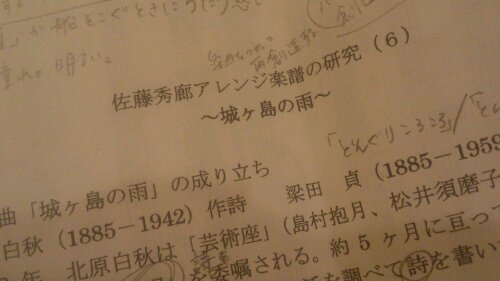 が船をこぐときにうたう
明るい。
佐藤秀廊アレンジ楽譜の研究（6）
～城ヶ島の雨～
「どんぐりころころ」/「と
曲「城ヶ島の雨」の成り立ち
白秋（1885-1942）作詩　梁田　貞（1885-1959
年、北原白秋は「芸術座」（島村抱月、松井須磨子
を委嘱される。約５ヶ月に亘っ
を調べて詩を書い